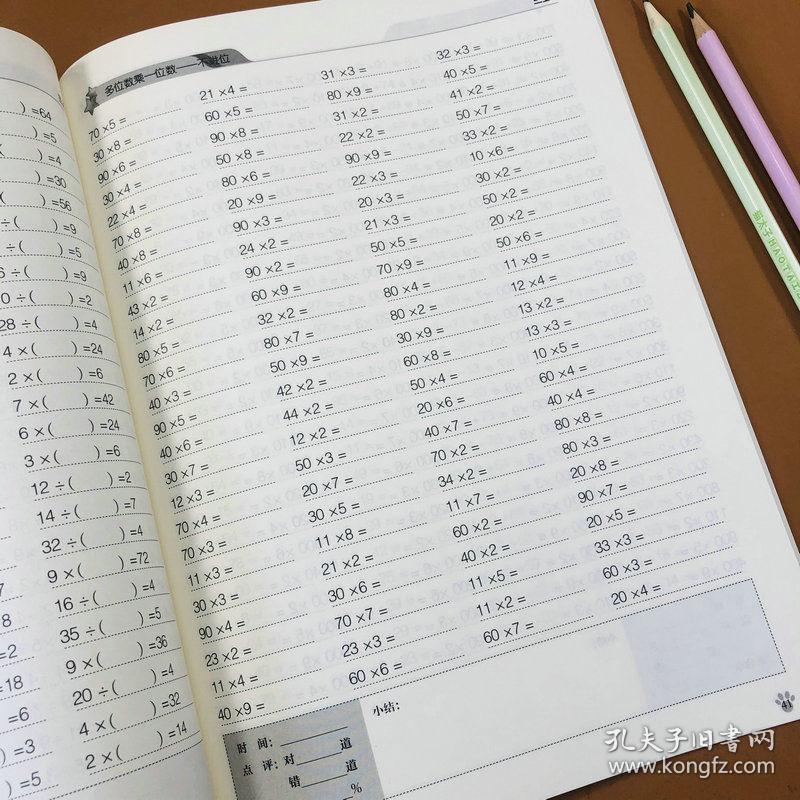 )=64
)=5
)=4
)=30
)=56
÷( )=9
÷( )=5
6 ÷( )=9
0 ÷( )=2
28 ÷( )=4
4 ×( )=24
2 ×( )=6
7 ×( )=42
6 ×( )=24
3 ×( )=6
12 ÷( )=2
14 ÷( )=7
32 ÷( )=4
9 ×( )=72
16 ÷( )=4
35 ÷( )=5
9 ×( )=36
20 ÷( )=4
4 ×( )=32
2 ×( )=14
=2
=18
=6
)=3
)=5
多位数乘一位数——不进位
70 ×5 =
30 ×8 =
90 ×6 =
30 ×4 =
22 ×4 =
70 ×8 =
40 ×8 =
11 ×6 =
43 ×2 =
14 ×2 =
80 ×5 =
70 ×6 =
40 ×3 =
90 ×5 =
40 ×6 =
30 ×7 =
12 ×3 =
70 ×4 =
70 ×3 =
11 ×3 =
30 ×3 =
90 ×4 =
23 ×2 =
11 ×4 =
40 ×9 =
21 ×4 =
60 ×5 =
90 ×8 =
50 ×8 =
80 ×6 =
20 ×9 =
90 ×3 =
24 ×2 =
90 ×2 =
60 ×9 =
32 ×2 =
80 ×7 =
50 ×9 =
42 ×2 =
44 ×2 =
12 ×2 =
50 ×3 =
20 ×7 =
30 ×5 =
11 ×8 =
21 ×2 =
30 ×6 =
70 ×7 =
23 ×3 =
60 ×6 =
31 ×3 =
80 ×9 =
31 ×2 =
22 ×2 =
90 ×9 =
22 ×3 =
20 ×3 =
21 ×3 =
50 ×5 =
70 ×9 =
80 ×4 =
80 ×2 =
30 ×9 =
60 ×8 =
50 ×4 =
20 ×6 =
40 ×7 =
70 ×2 =
34 ×2 =
11 ×7 =
60 ×2 =
40 ×2 =
11 ×5 =
11 ×2 =
60 ×7 =
32 ×3 =
40 ×5 =
41 ×2 =
50 ×7 =
33 ×2 =
10 ×6 =
30 ×2 =
50 ×2 =
20 ×2 =
50 ×6 =
11 ×9 =
12 ×4 =
13 ×2 =
13 ×3 =
10 ×5 =
60 ×4 =
40 ×4 =
80 ×8 =
80 ×3 =
20 ×8 =
90 ×7 =
20 ×5 =
33 ×3 =
60 ×3 =
20 ×4 =
时 间:
点 评: 对 道
错 道
%
小结:
41
孔夫子旧书网
www.kongfz.com